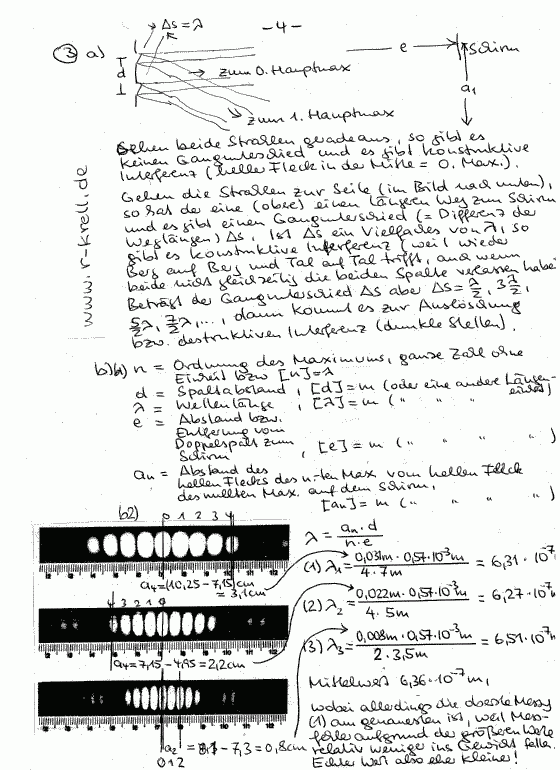 -4-
Δs=λ
③ a)
d
e
Schirm
zum 0. Hauptmax
a₁
zum 1. Hauptmax
www.r-krell.de
Gehen beide Strahlen geradeaus, so gibt es
keinen Gangunterschied und es gibt konstruktive
Interferenz (heller Fleck in der Mitte = 0. Max.).
Gehen die Strahlen zur Seite (im Bild nach unten),
so hat der eine (obere) einen längeren Weg zum Schirm
und es gibt einen Gangunterschied (= Differenz der
Weglängen) Δs. Ist Δs ein Vielfaches von λ, so
gibt es konstruktive Interferenz (weil wieder
Berg auf Berg und Tal auf Tal trifft, auch wenn
beide nicht gleichzeitig die beiden Spalte verlassen haben.
Beträgt der Gangunterschied Δs aber Δs=λ/2, 3λ/2,
5/2λ, 7/2λ, ..., dann kommt es zur Auslöschung
bzw. destruktiven Interferenz (dunkle Stellen).
b)b1) n = Ordnung des Maximums, ganze Zahl ohne
Einheit bzw [n]=1
d = Spaltabstand, [d]=m (oder eine andere Längen-
einheit)
λ = Wellenlänge, [λ]=m ( " " " )
e = Abstand bzw.
Entfernung vom
Doppelspalt zum
Schirm, [e]=m ( " " " " )
aₙ = Abstand des
hellen Flecks des n-ten Max. vom hellen Fleck
des nullten Max. auf dem Schirm,
[aₙ]=m ( " " " " )
b2) 0 1 2 3 4
λ = aₙ·d / n·e
a₄=(10,25-7,15)cm
= 3,1cm
(1) λ₁ = 0,031m·0,57·10⁻³m / 4·7m = 6,31·10⁻⁷
4 3 2 1 0
(2) λ₂ = 0,022m·0,57·10⁻³m / 4·5m = 6,27·10⁻⁷
a₄=7,15-4,95=2,2cm
(3) λ₃ = 0,008m·0,57·10⁻³m / 2·3,5m = 6,51·10⁻⁷
Mittelwert 6,36·10⁻⁷m,
wobei allerdings die oberste Messg
(1) am genauesten ist, weil Mess-
fehler aufgrund der größeren Werte
relativ weniger ins Gewicht fallen.
Echter Wert also eher kleiner!
a₂ = 8,1-7,3=0,8cm
0 1 2